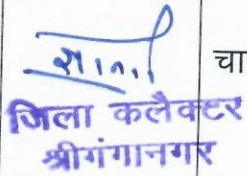 चा
जिला कलैक्टर
श्रीगंगानगर